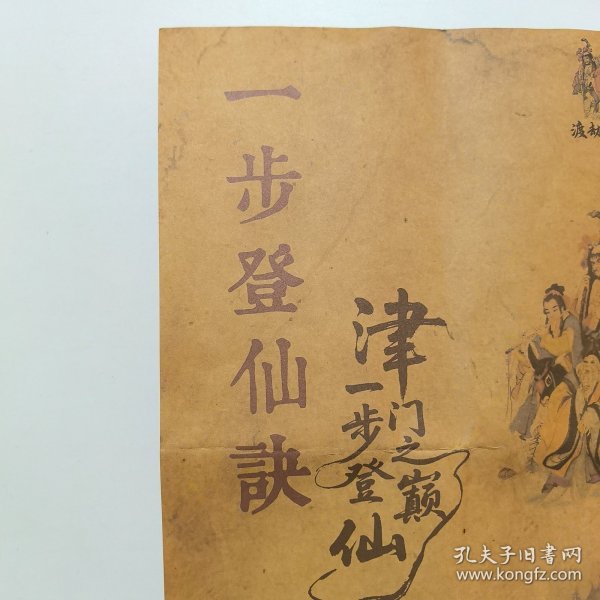 一步登仙訣
津门之巅
一步登仙
渡劫
孔夫子旧书网
www.kongfz.com